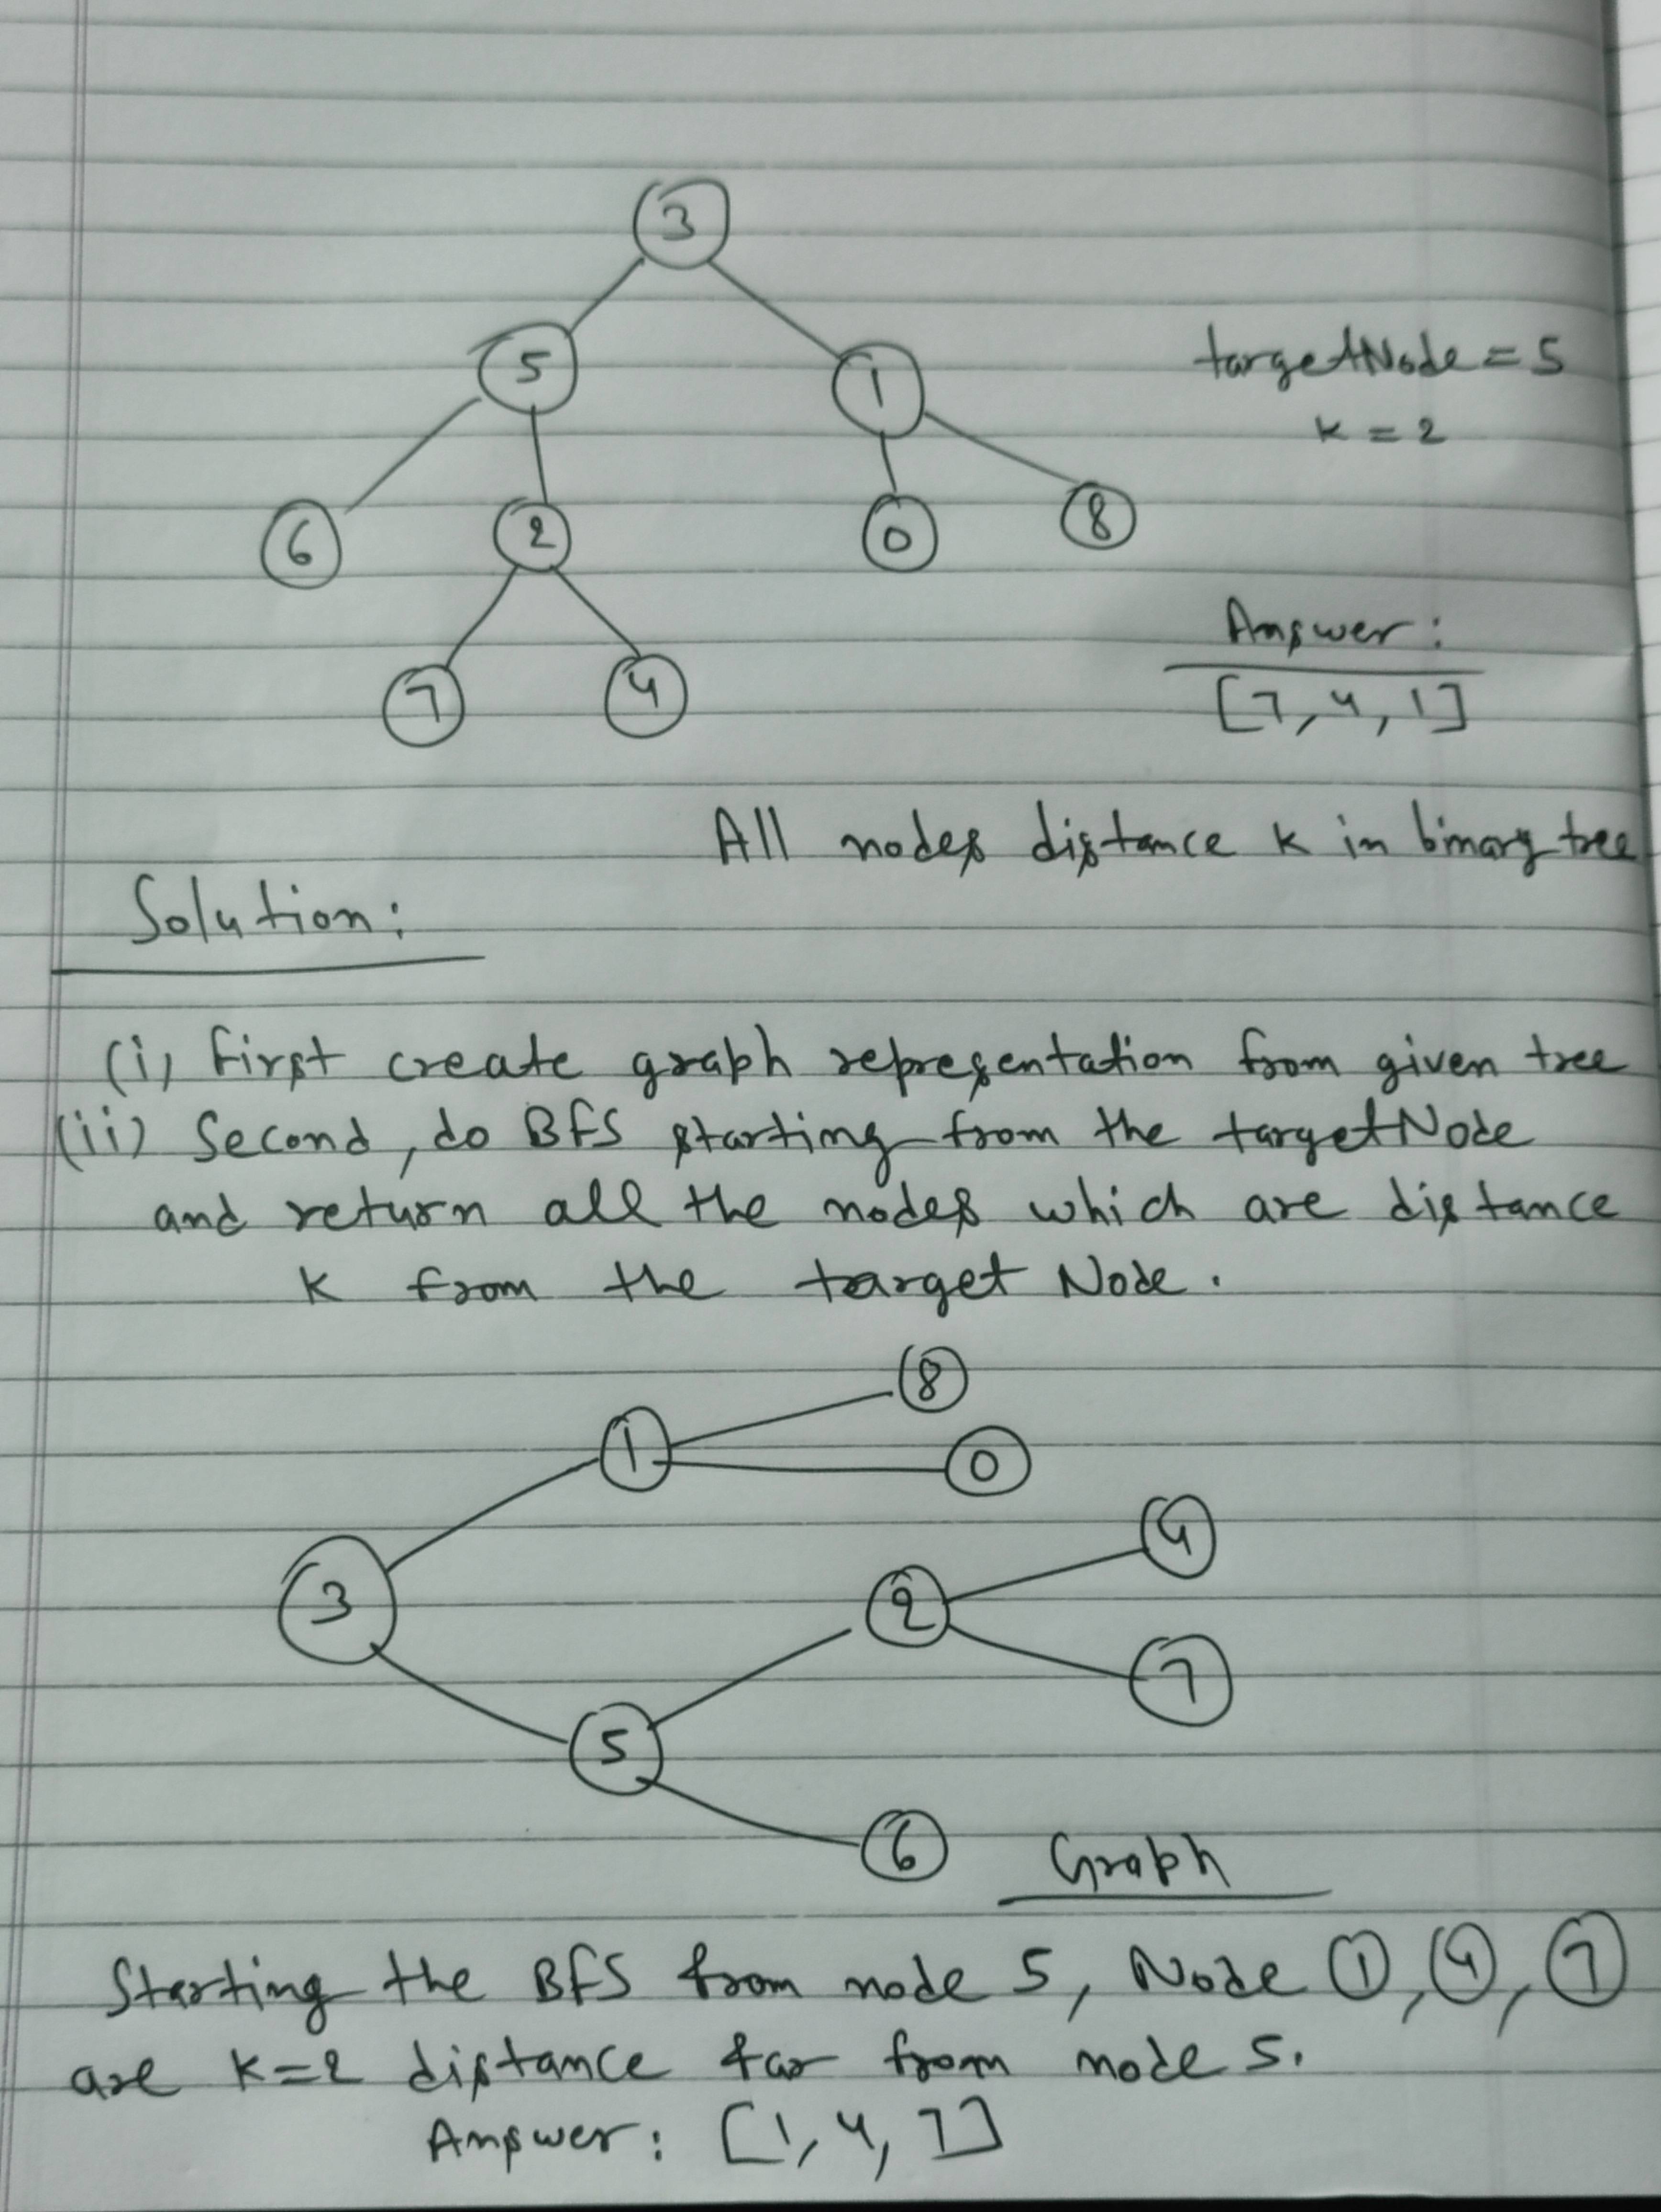 3
5 1
targetNode = 5
k = 2
6 2 0 8
Answer:
7 4
[7, 4, 1]
All nodes distance k in binary tree
Solution:
(i) First create graph representation from given tree
(ii) Second, do BFS starting from the targetNode
and return all the nodes which are distance
K from the target Node.
8
1 0
4
3 2
7
5
6
Graph
Starting the BFS from node 5, Node 1, 4, 7
are k=2 distance far from node 5.
Answer: [1, 4, 7]